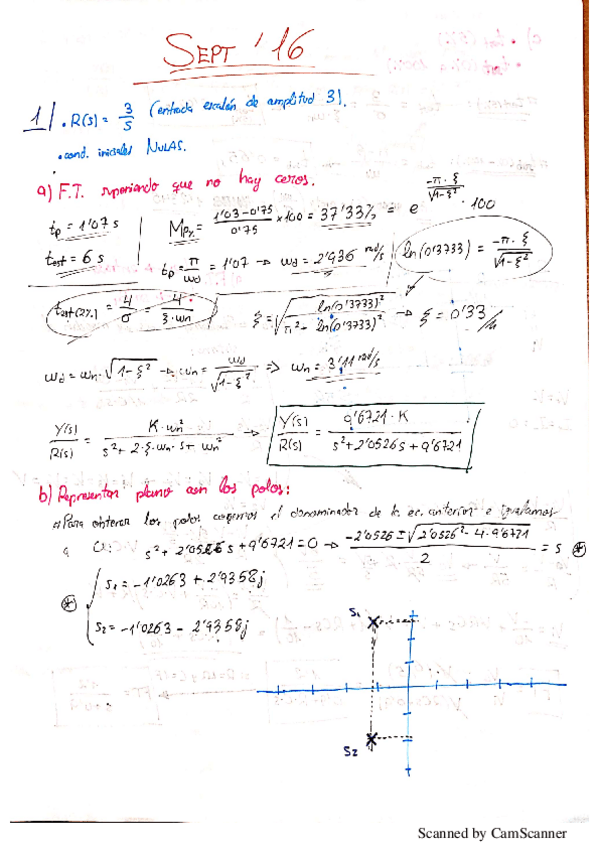 SEPT '16
1/ • R(s) = 3/s (entrada escalón de amplitud 3).
• cond. iniciales NULAS.
a) F.T. suponiendo que no hay ceros.
tp = 1'07 s
test = 6 s
Mp% = (1'03-0'75)/0'75 x100 = 37'33% = e^(-π·ξ/√(1-ξ²)) · 100
tp = π/ωd = 1'07 → ωd = 2'936 rad/s
ln(0'3733) = -π·ξ/√(1-ξ²)
test(2%) = 4/σ = 4/(ξ·ωn)
ξ = √(ln(0'3733)²/(π² + ln(0'3733)²)) → ξ = 0'33
ωd = ωn·√(1-ξ²) → ωn = ωd/√(1-ξ²) => ωn = 3'11 rad/s
Y(s)/R(s) = K·ωn²/(s² + 2·ξ·ωn·s + ωn²) → Y(s)/R(s) = 9'6721·K/(s² + 2'0526s + 9'6721)
b) Representar plano con los polos:
Para obtener los polos cogemos el denominador de la ec. anterior e igualamos
a 0: s² + 2'0526s + 9'6721 = 0 → (-2'0526 ± √(2'0526² - 4·9'6721))/2 = s ⊛
⊛ { s1 = -1'0263 + 2'9358j
s2 = -1'0263 - 2'9358j
S1
S2
Scanned by CamScanner